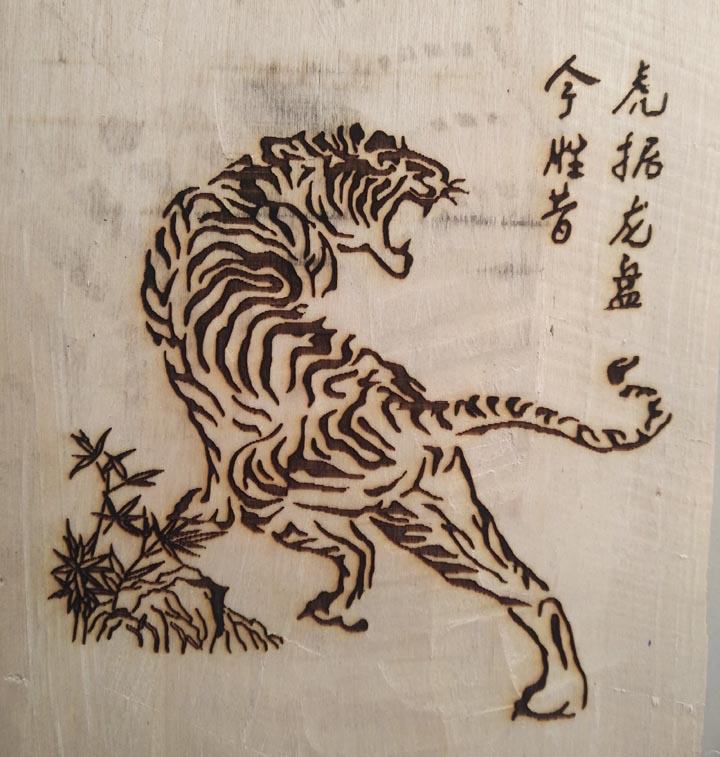 虎据龙盘
今胜昔